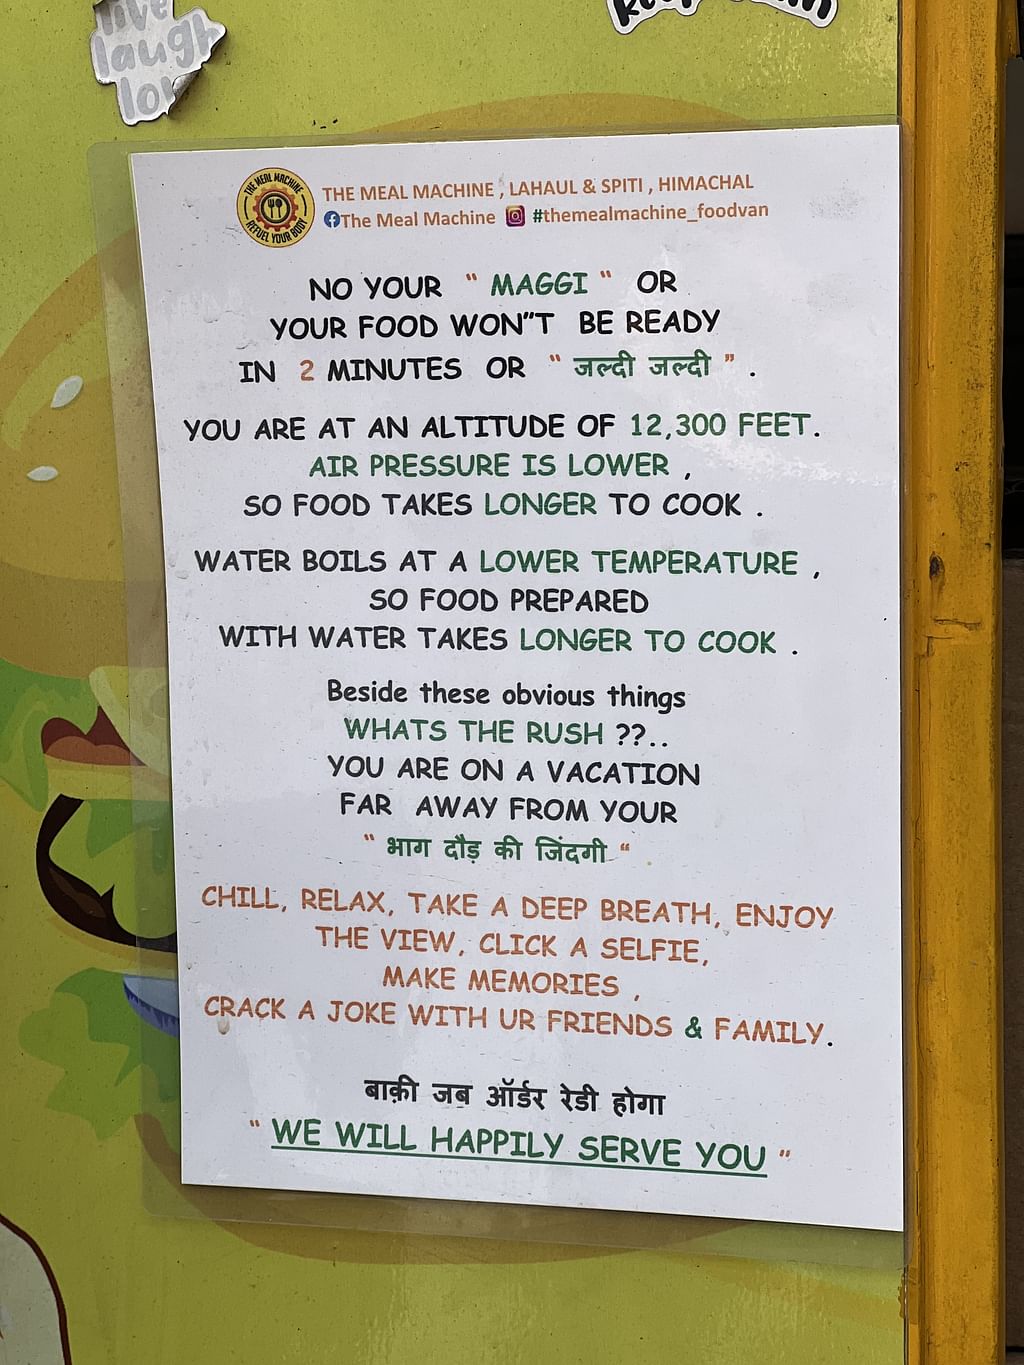 live
laugh
lov
THE MEAL MACHINE
REFUEL YOUR BODY
THE MEAL MACHINE , LAHAUL & SPITI , HIMACHAL
The Meal Machine #themealmachine_foodvan
NO YOUR " MAGGI " OR
YOUR FOOD WON"T BE READY
IN 2 MINUTES OR " जल्दी जल्दी " .
YOU ARE AT AN ALTITUDE OF 12,300 FEET.
AIR PRESSURE IS LOWER ,
SO FOOD TAKES LONGER TO COOK .
WATER BOILS AT A LOWER TEMPERATURE ,
SO FOOD PREPARED
WITH WATER TAKES LONGER TO COOK .
Beside these obvious things
WHATS THE RUSH ??..
YOU ARE ON A VACATION
FAR AWAY FROM YOUR
" भाग दौड़ की जिंदगी "
CHILL, RELAX, TAKE A DEEP BREATH, ENJOY
THE VIEW, CLICK A SELFIE,
MAKE MEMORIES ,
CRACK A JOKE WITH UR FRIENDS & FAMILY.
बाक़ी जब ऑर्डर रेडी होगा
" WE WILL HAPPILY SERVE YOU "